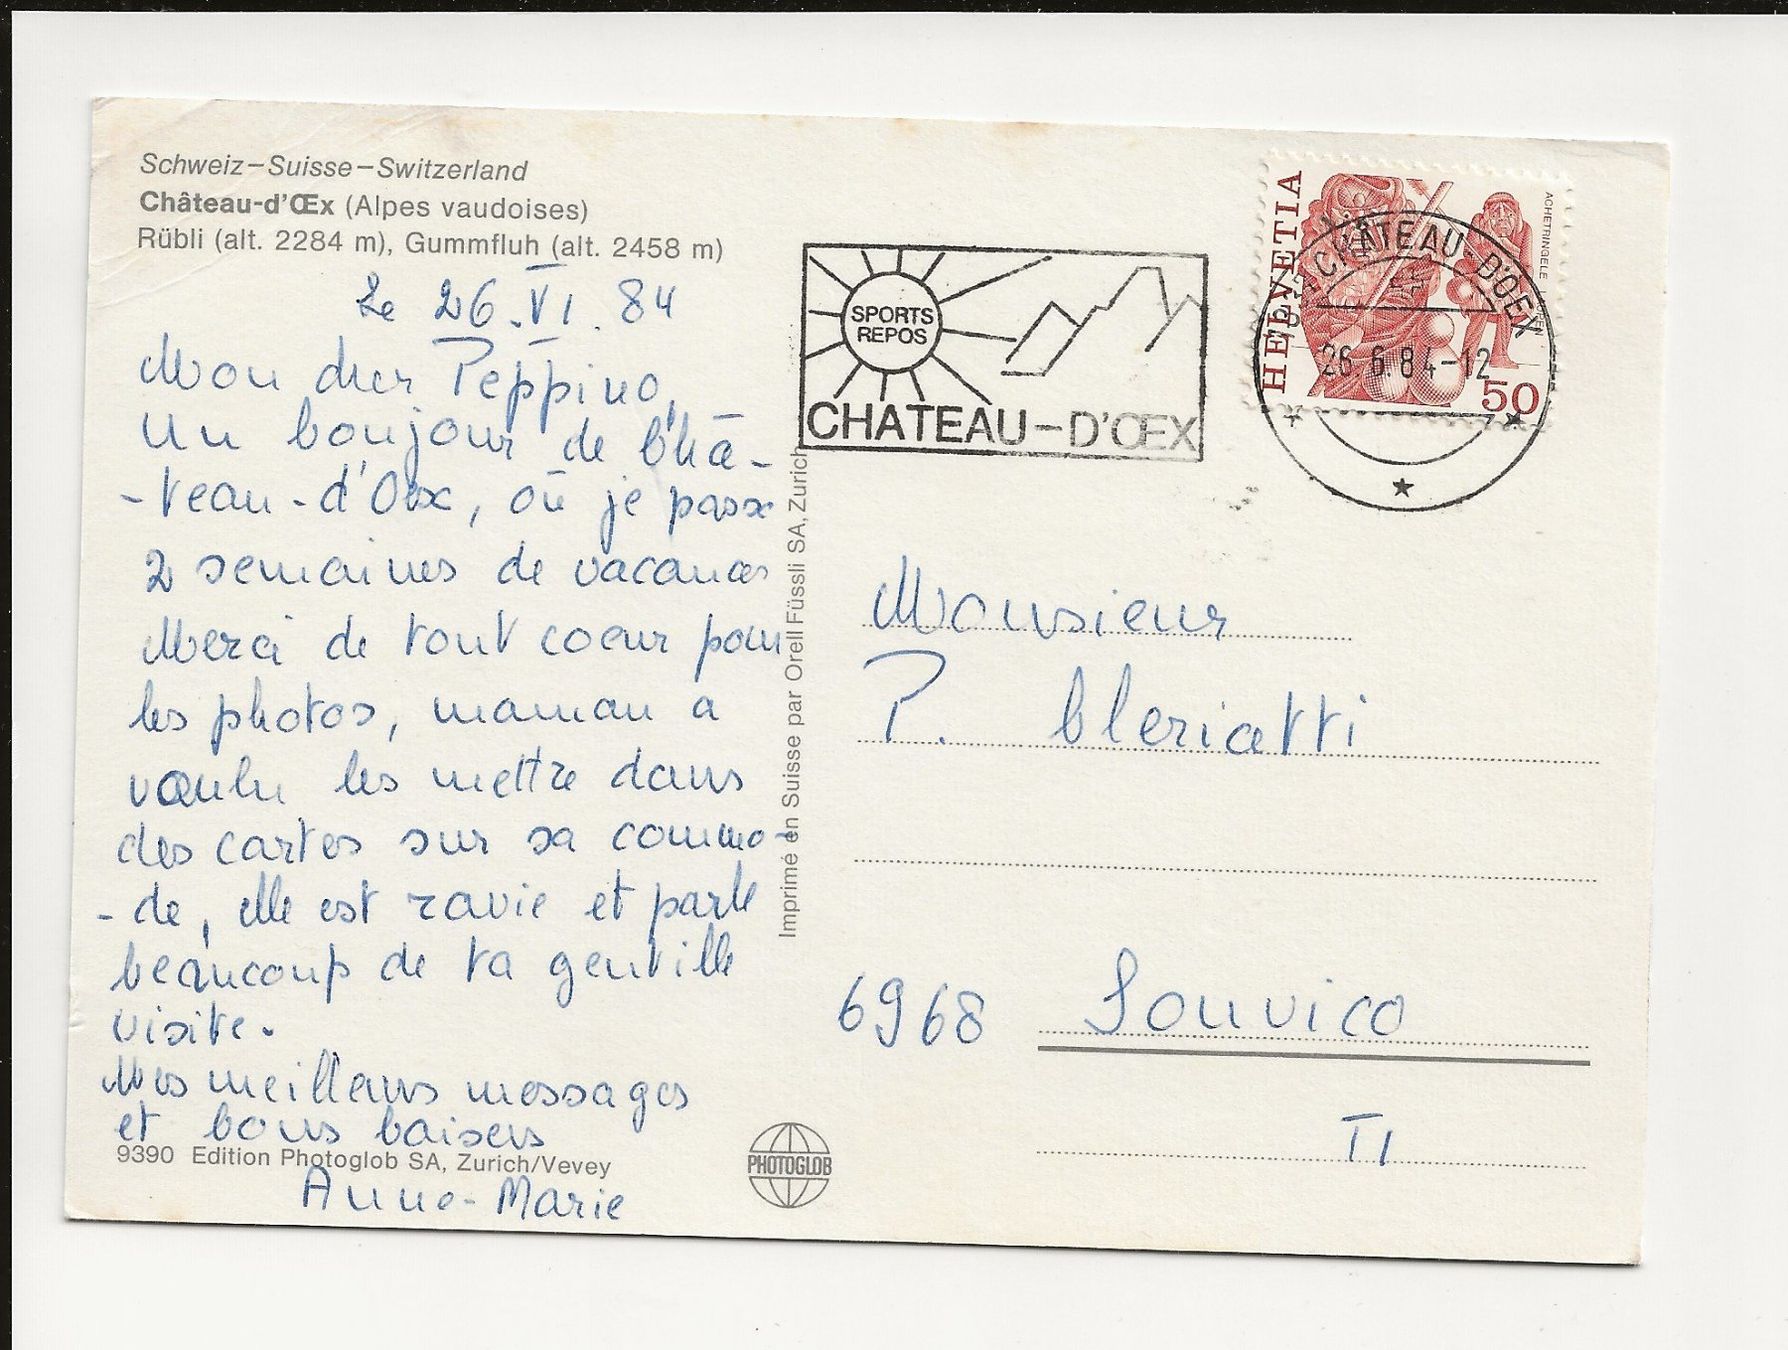 Schweiz–Suisse–Switzerland
Château-d'Œx (Alpes vaudoises)
Rübli (alt. 2284 m), Gummfluh (alt. 2458 m)
Le 26.VI.84
Mon cher Peppino,
Un bonjour de Châ-
-teau-d'Oex, où je passe
2 semaines de vacances
Merci de tout coeur pour
les photos, maman a
voulu les mettre dans
des cartes sur sa commo-
-de, elle est ravie et parle
beaucoup de ta gentille
visite.
Mes meilleurs messages
et bons baisers
9390 Edition Photoglob SA, Zurich/Vevey
Anne-Marie
Imprimé en Suisse par Orell Füssli SA, Zurich
PHOTOGLOB
SPORTS
REPOS
CHATEAU-D'ŒX
HELVETIA
ACHETRINGELE
50
CHÂTEAU-D'OEX
26.6.84-12
Monsieur
P. Cleriatti
6968 Sonvico
TI